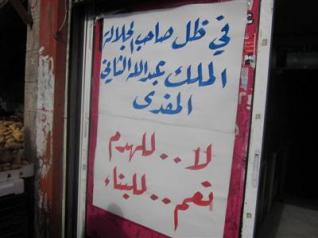 في ظل صاحب الجلالة
الملك عبدالله الثاني
المفدى
لا.. للهدم
نعم.. للبناء